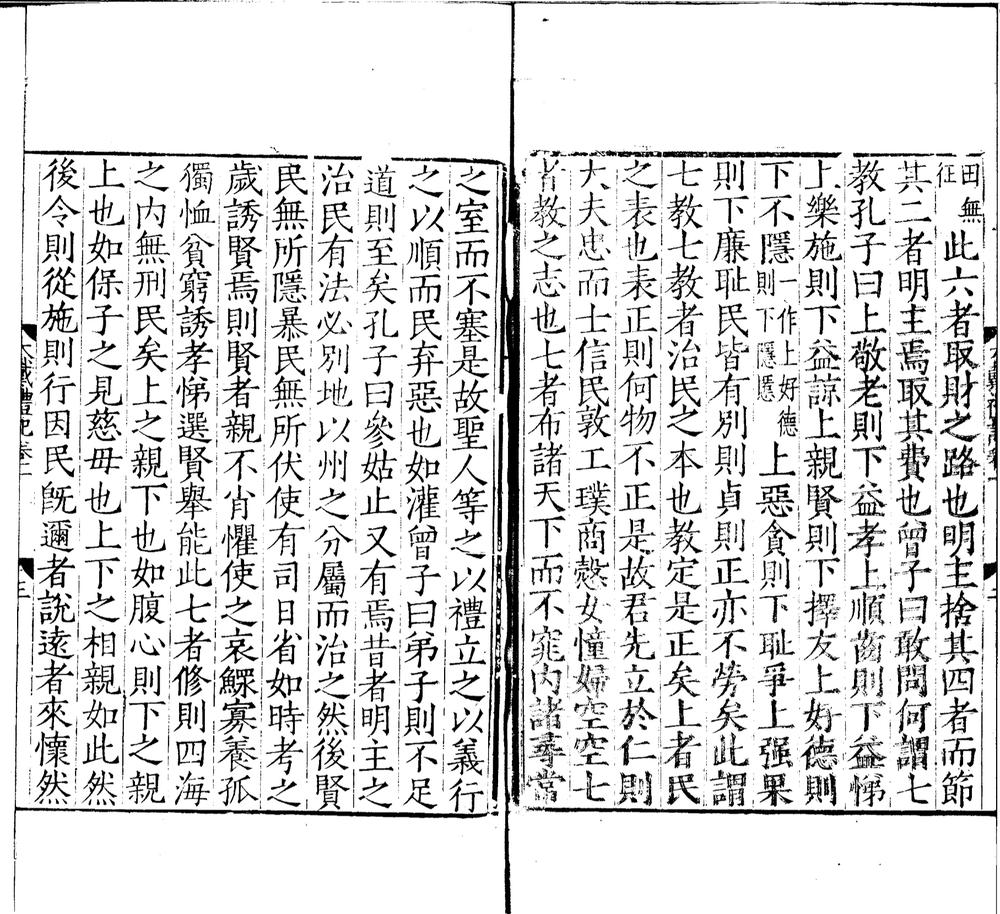 田無
征
此六者取財之路也明主捨其四者而節
其二者明主焉取其費也曾子曰敢問何謂七
教孔子曰上敬老則下益孝上順齒則下益悌
上樂施則下益諒上親賢則下擇友上好德則
下不隱一作上好德則下隱慝上惡貪則下耻爭上强果
則下廉耻民皆有別則貞則正亦不勞矣此謂
七教七教者治民之本也教定是正矣上者民
之表也表正則何物不正是故君先立於仁則
大夫忠而士信民敦工璞商慤女憧婦空空七
者教之志也七者布諸天下而不窕内諸尋常
之室而不塞是故聖人等之以禮立之以義行
之以順而民弃惡也如灌曾子曰弟子則不足
道則至矣孔子曰參姑止又有焉昔者明主之
治民有法必別地以州之分屬而治之然後賢
民無所隱暴民無所伏使有司日省如時考之
歲誘賢焉則賢者親不肖懼使之哀鰥寡養孤
獨恤貧窮誘孝悌選賢舉能此七者修則四海
之内無刑民矣上之親下也如腹心則下之親
上也如保子之見慈母也上下之相親如此然
後令則從施則行因民旣邇者說遠者來懷然